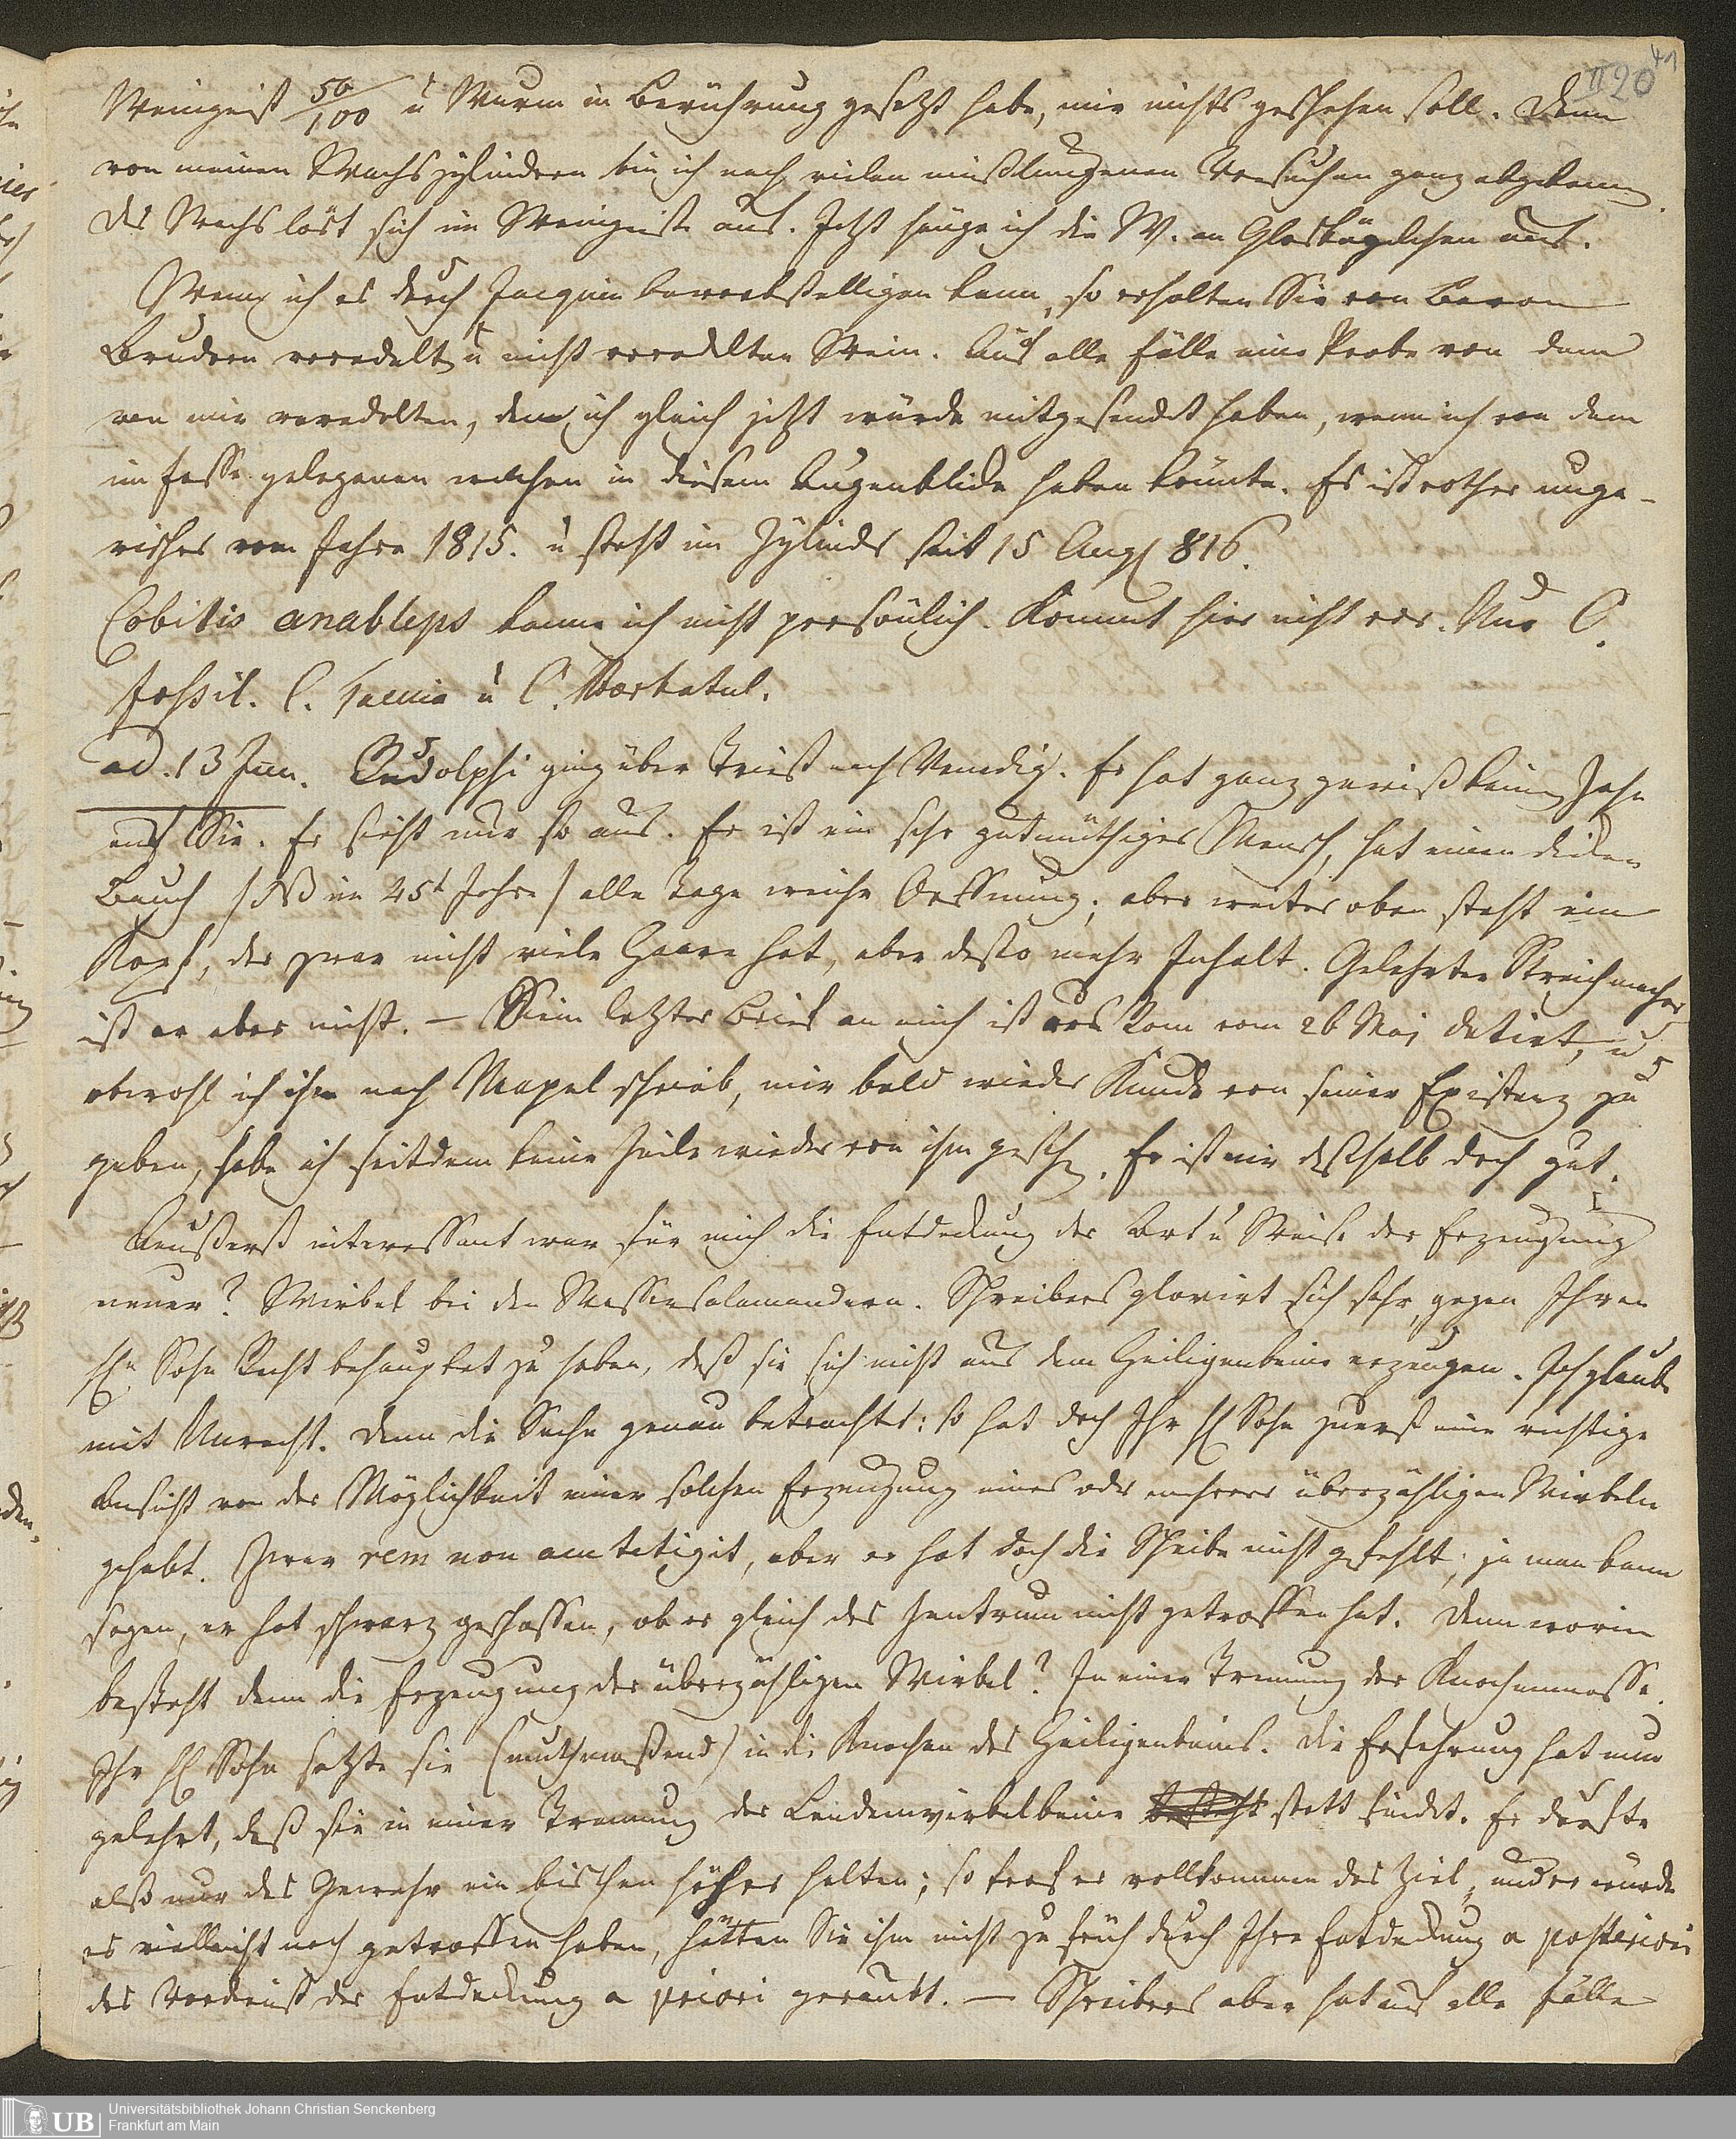 41
II 20
Weingeist 50/100 u Wurm in Berührung gesetzt habe, mir nichts geschehen soll. Denn
von meinen Wachszylindern bin ich nach vielen mißlungenen Versuchen ganz abgekomm
Das Wachs löst sich im Weingeiste auf. Jetzt hänge ich die W. an Glaskügelchen auf.
Wenn ich es durch Jacquin bewerkstelligen kann, so erhalten Sie von Baron
Brudern veredelt u nicht veredelten Wein. Auf alle Fälle eine Probe von dem
von mir veredelten, den ich gleich jetzt würde mitgesendet haben, wenn ich von dem
im Fasse gelegenen welchen in diesem Augenblicke haben könnte. Es ist rother unga-
rischer vom Jahre 1815. u steht im Zylinder seit 15 Aug 816.
Cobitis anableps kenne ich nicht persönlich. Kommt hier nicht vor. Nur C.
fossil. C. Taenia u C. Barbatul.
ad. 13 Jun. Rudolphi ging über Triest nach Venedig. Er hat ganz gewiß keinen Zahn
auf Sie. Er sieht nur so aus. Er ist ein sehr gutmüthiger Mensch, hat einen dicken
Bauch / biß im 45t Jahre / alle Tage weiche Oeffnung; aber weiter oben steht ein
Kopf, der zwar nicht viele Haare hat, aber desto mehr Inhalt. Gelehrter Streichmacher
ist er aber nicht. — Sein letzter Brief an mich ist aus Rom vom 26 Mai datirt, u
obwohl ich ihm nach Neapel schrieb, mir bald wieder Kunde von seiner Existenz zu
geben, habe ich seitdem keine Zeile wieder von ihm gesehen. Er ist mir deßhalb doch gut.
Aeußerst interessant war für mich die Entdeckung der Art u Weise der Erzeugung
neuer? Wirbel bei den Wassersalamandern. Schreibers glorirt sich sehr, gegen Ihren
Hn Sohn Recht behauptet zu haben, daß sie sich nicht aus dem Heiligenbeine erzeugen. Ich glaube
mit Unrecht. Denn die Sache genau betrachtet: so hat doch Ihr H Sohn zuerst eine richtige
Ansicht von der Möglichkeit einer solchen Erzeugung eines oder mehrerer überzähligen Wirbeln
gehabt. Zwar rem non acu tetigit, aber er hat doch die Scheibe nicht gefehlt; ja man kann
sagen, er hat schwarz geschossen, ob er gleich das Zentrum nicht getroffen hat. Denn worin
besteht denn die Erzeugung der überzähligen Wirbel? In einer Trennung der Knochenmasse.
Ihr H Sohn setzte sie (muthmaßend) in die Knochen des Heiligenbeins. Die Erfahrung hat nun
gelehrt, daß sie in einer Trennung der Lendenwirbelbeine besteht statt findet. Er durfte
alß nur das Gewehr ein bischen höher halten; so traf er vollkommen das Ziel, und er würde
es vielleicht noch getroffen haben, hätten Sie ihm nicht zu früh durch Ihre Entdeckung a posteriori
das Verdienst der Entdeckung a priori geraubt. — Schreibers aber hat auf alle Fälle
Universitätsbibliothek Johann Christian Senckenberg
Frankfurt am Main
UB